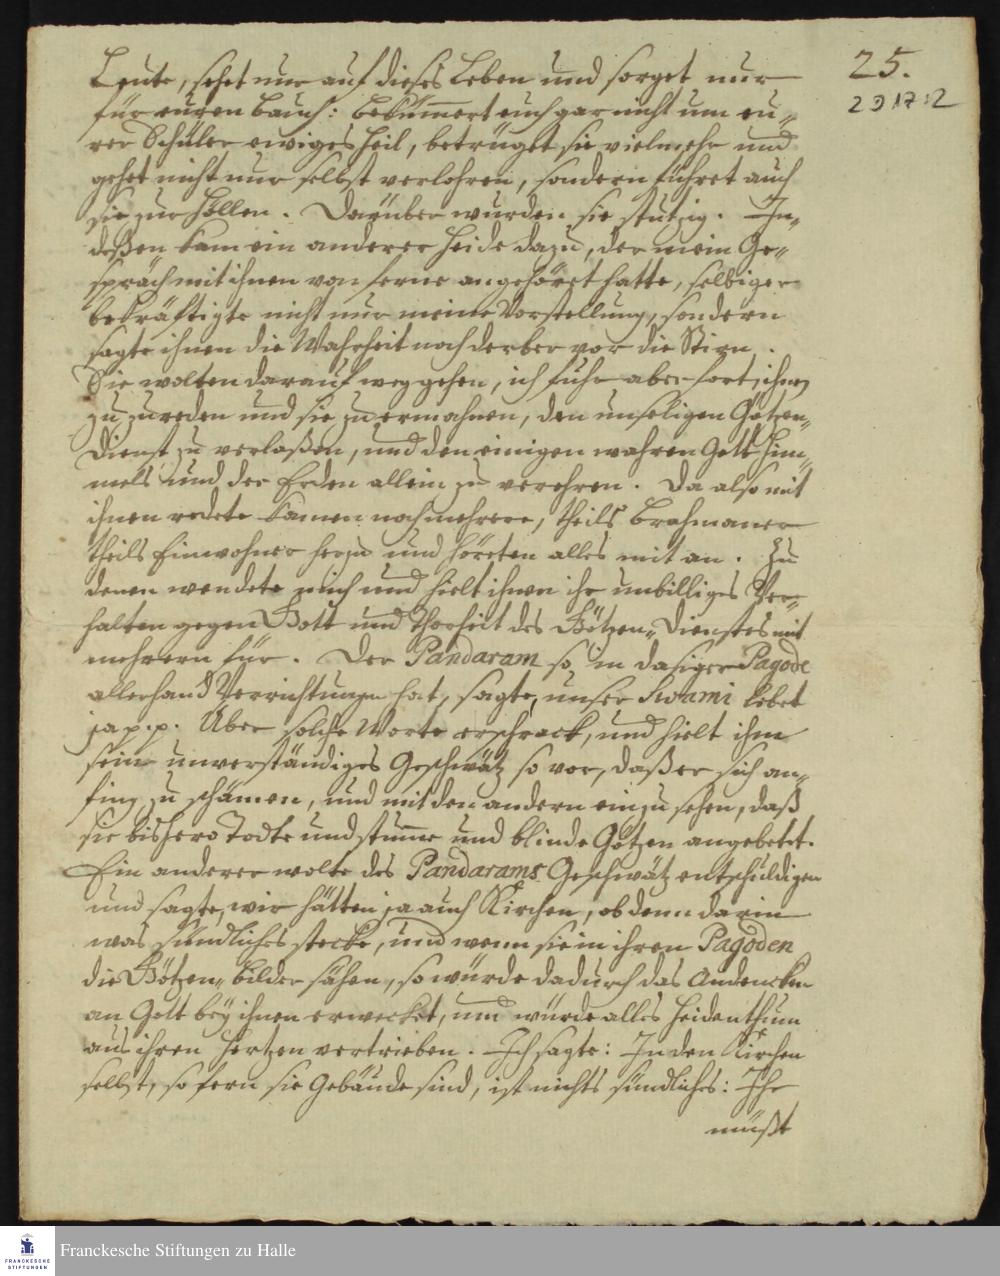 25.
2 J 17:2
Leute, sehet nur auf dieses Leben und sorget nur
für euren Bauch: bekümmert euch gar nicht um eu-
rer Schüler ewiges Heil, betrüget sie vielmehr und
gehet nicht nur selbst verlohren, sondern führet auch
sie zur Höllen. Darüber wurden sie stutzig. In-
deßen kam ein anderer Heide dazu, der mein Ge-
spräch mit ihnen von ferne angehöret hatte, selbiger
bekräftigte nicht nur meine Vorstellung, sondern
sagte ihnen die Wahrheit noch derber vor die Stirn.
Sie wolten darauf weg gehen, ich fuhr aber fort, ihnen
zu zureden und sie zu ermahnen, den unseligen Götzen-
Dienst zu verlaßen, und den einigen wahren Gott Him-
mels und der Erden allein zu verehren. Da also mit
ihnen redete kamen noch mehrere, theils Brahmaner
theils Einwohner herzu und höreten alles mit an. Zu
denen wendete mich und hielt ihnen ihr unbilliges Ver-
halten gegen Gott und Thorheit des Götzen-Dienstes mit
mehrern für. Der Pandaram so in dasiger Pagode
allerhand Verrichtungen hat, sagte, unser Swami lebet
ja p. p. Über solche Worte erschrack, und hielt ihm
sein unverständiges Geschwätz so vor, daß er sich an-
fing zu schämen, und mit den andern einzusehen, daß
sie bishero Todte und stumme und blinde Götzen angebetet.
Ein anderer wolte des Pandarams Geschwätz entschuldigen
und sagte, wir hätten ja auch Kirchen, ob denn darin
was sündliches stecke, und wenn sie in ihren Pagoden
die Götzen-Bilder sähen, so würde dadurch das Andencken
an Gott bey ihnen erwecket, und würde alles Heidenthum
aus ihren Hertzen vertrieben. Ich sagte: In den Kirchen
selbst, so fern sie Gebäude sind, ist nichts sündliches: Ihr
müßt
FRANCKESCHE
STIFTUNGEN
Franckesche Stiftungen zu Halle